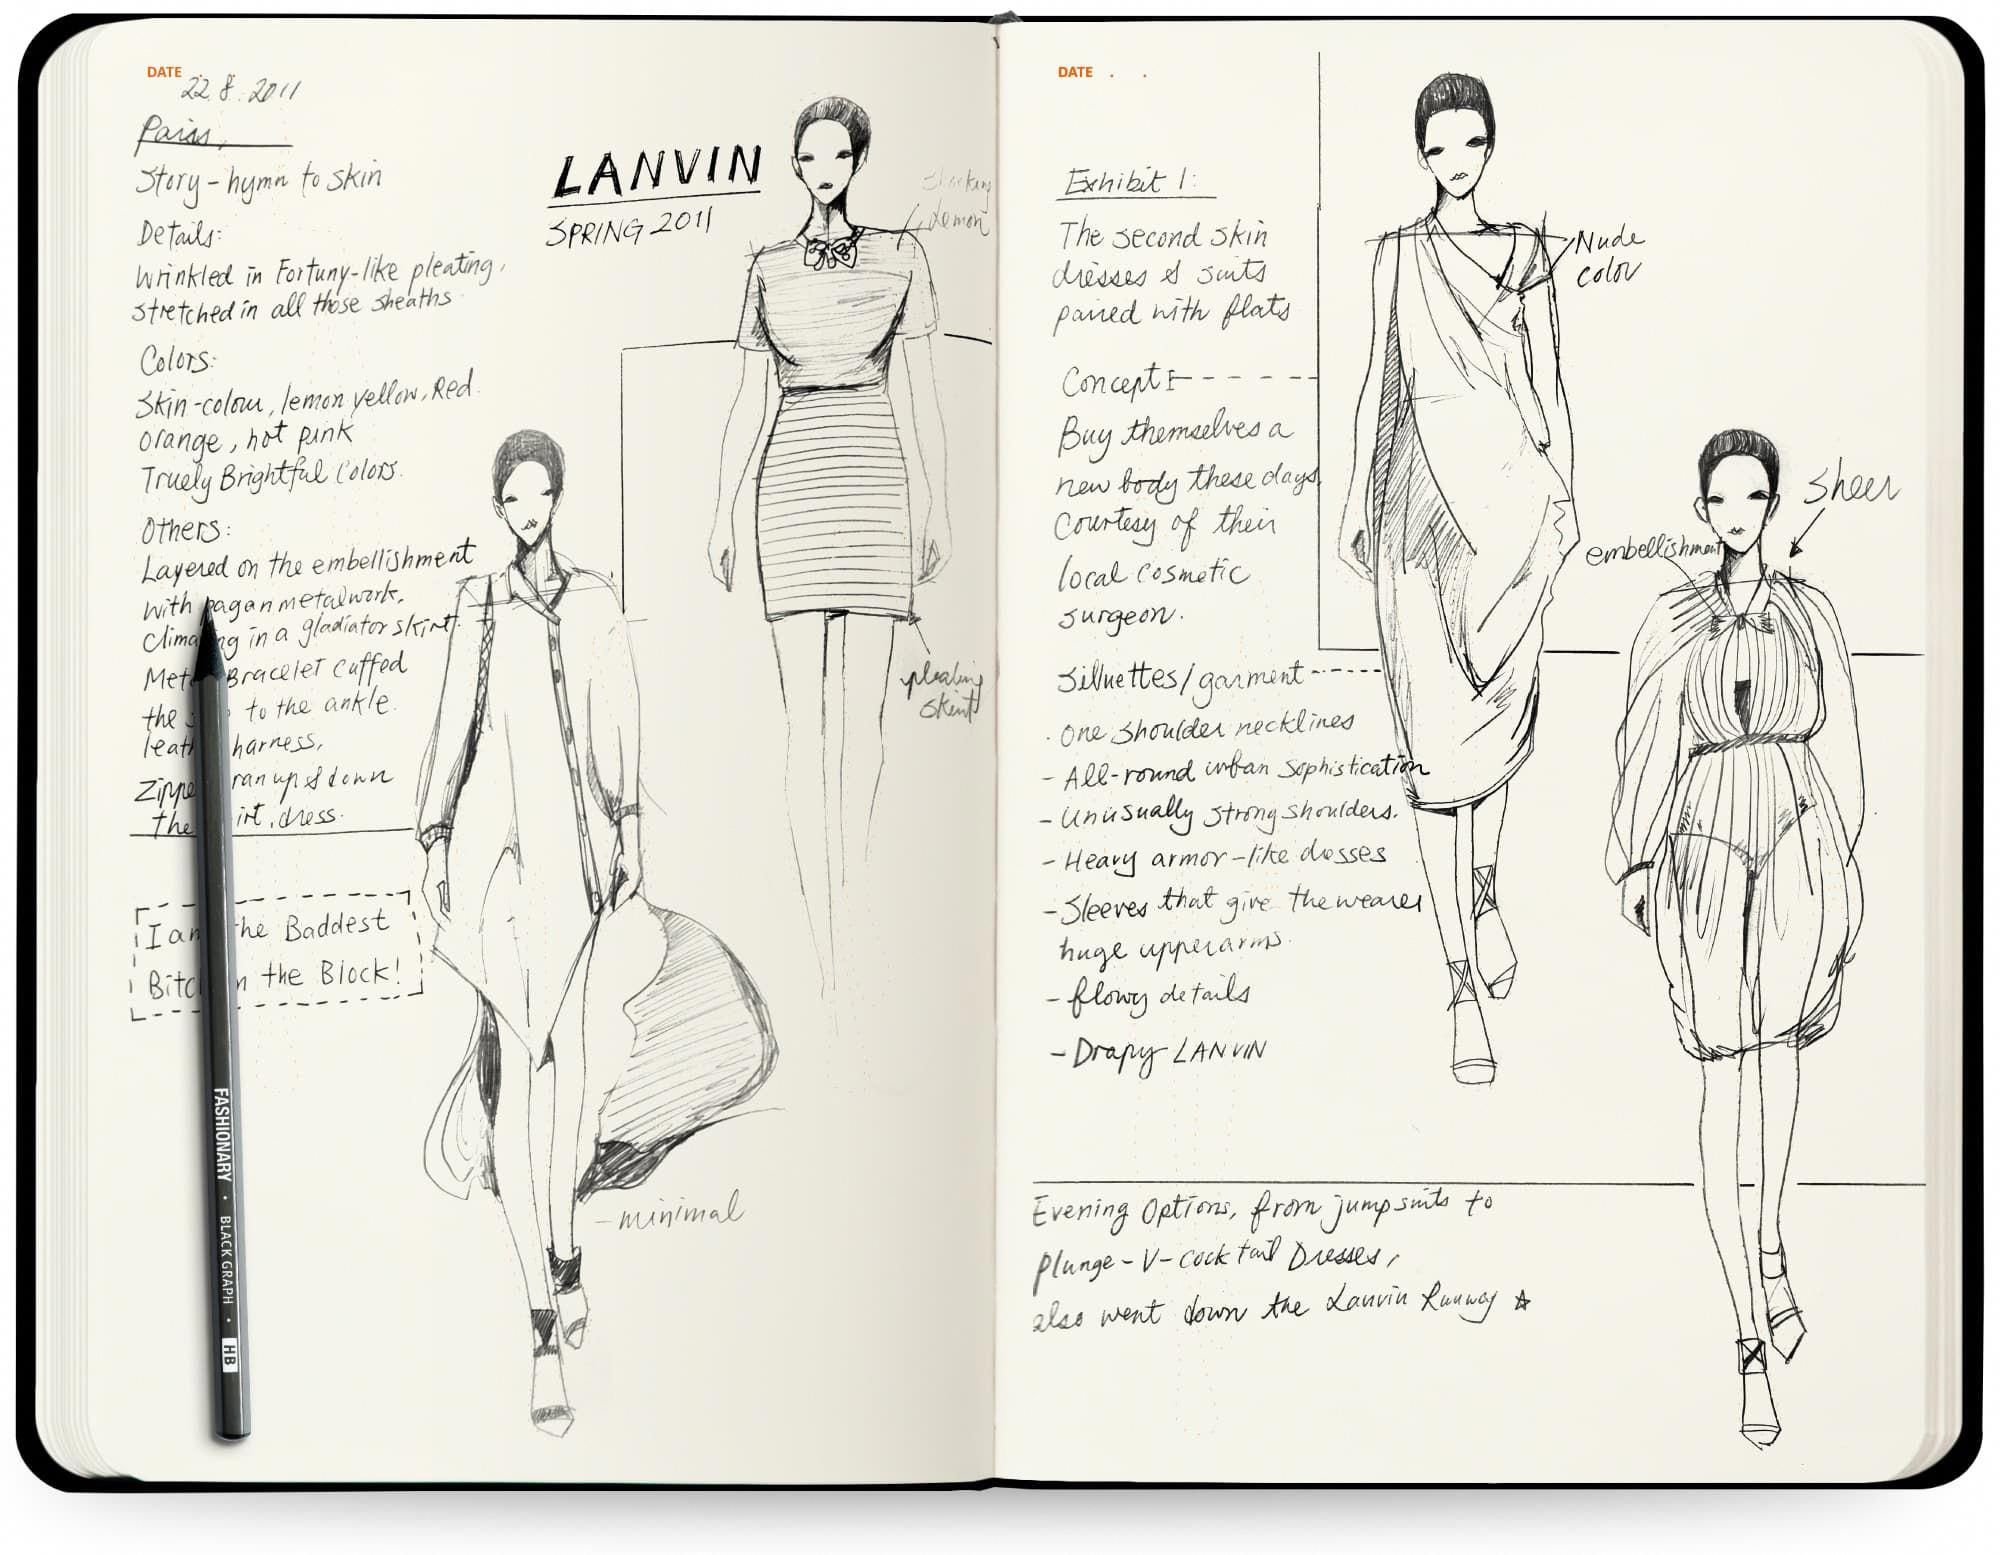 DATE . .
22. 8. 2011
Paris,
Story - hymn to skin
Details:
Wrinkled in Fortuny-like pleating,
stretched in all those sheaths
Colors:
Skin-colour, lemon yellow, Red
orange, hot pink
Truely Brightful Colors.
Others:
Layered on the embellishment
with pagan metalwork,
in a gladiator skirt
Bracelet cuffed
the to the ankle.
harness,
ran up & down
the dress.
I am the Baddest
Bitch in the Block!
LANVIN
SPRING 2011
shocking
lemon
pleating
skirt
- minimal
FASHIONARY · BLACK GRAPH · HB
DATE . .
Exhibit 1:
The second skin
dresses & suits
paired with flats
Concept
Buy themselves a
new body these days
Courtesy of their
local cosmetic
surgeon.
Silvettes/garment
. One shoulder necklines
- All-round urban sophistication
- Unusually strong shoulders.
- Heavy armor-like dresses
- Sleeves that give the wearer
huge upperarms.
- flowy details
- Drapy LANVIN
Nude
color
embellishment
Sheer
Evening Options, from jumpsuits to
plunge-V-cocktail Dresses,
also went down the Lanvin Runway ☆